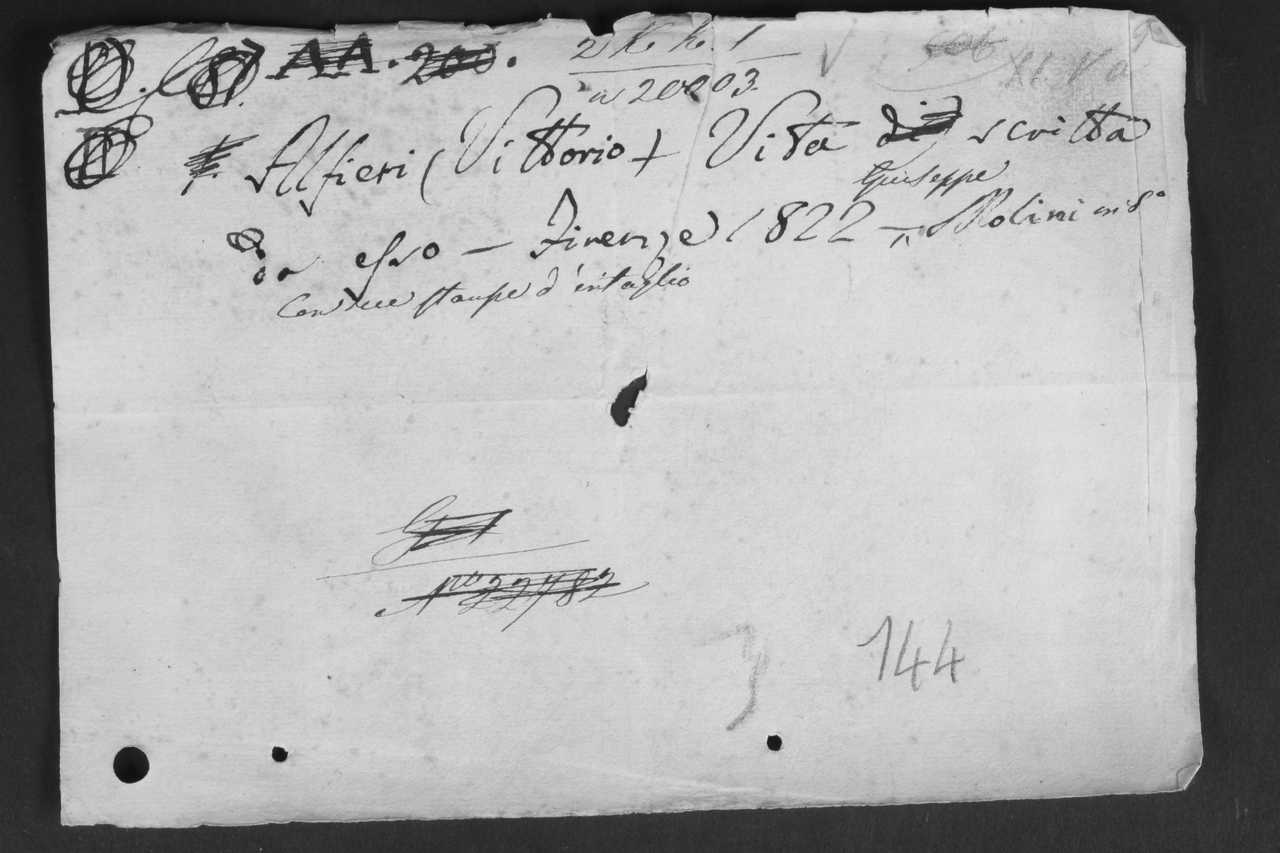 AA. 200.
2 K. k. 1
a 20003.
Alfieri (Vittorio) Vita di scritta
Giuseppe
Da esso — Firenze 1822 — Molini in 8°
Con due stampe d'intaglio
N° 22782
144